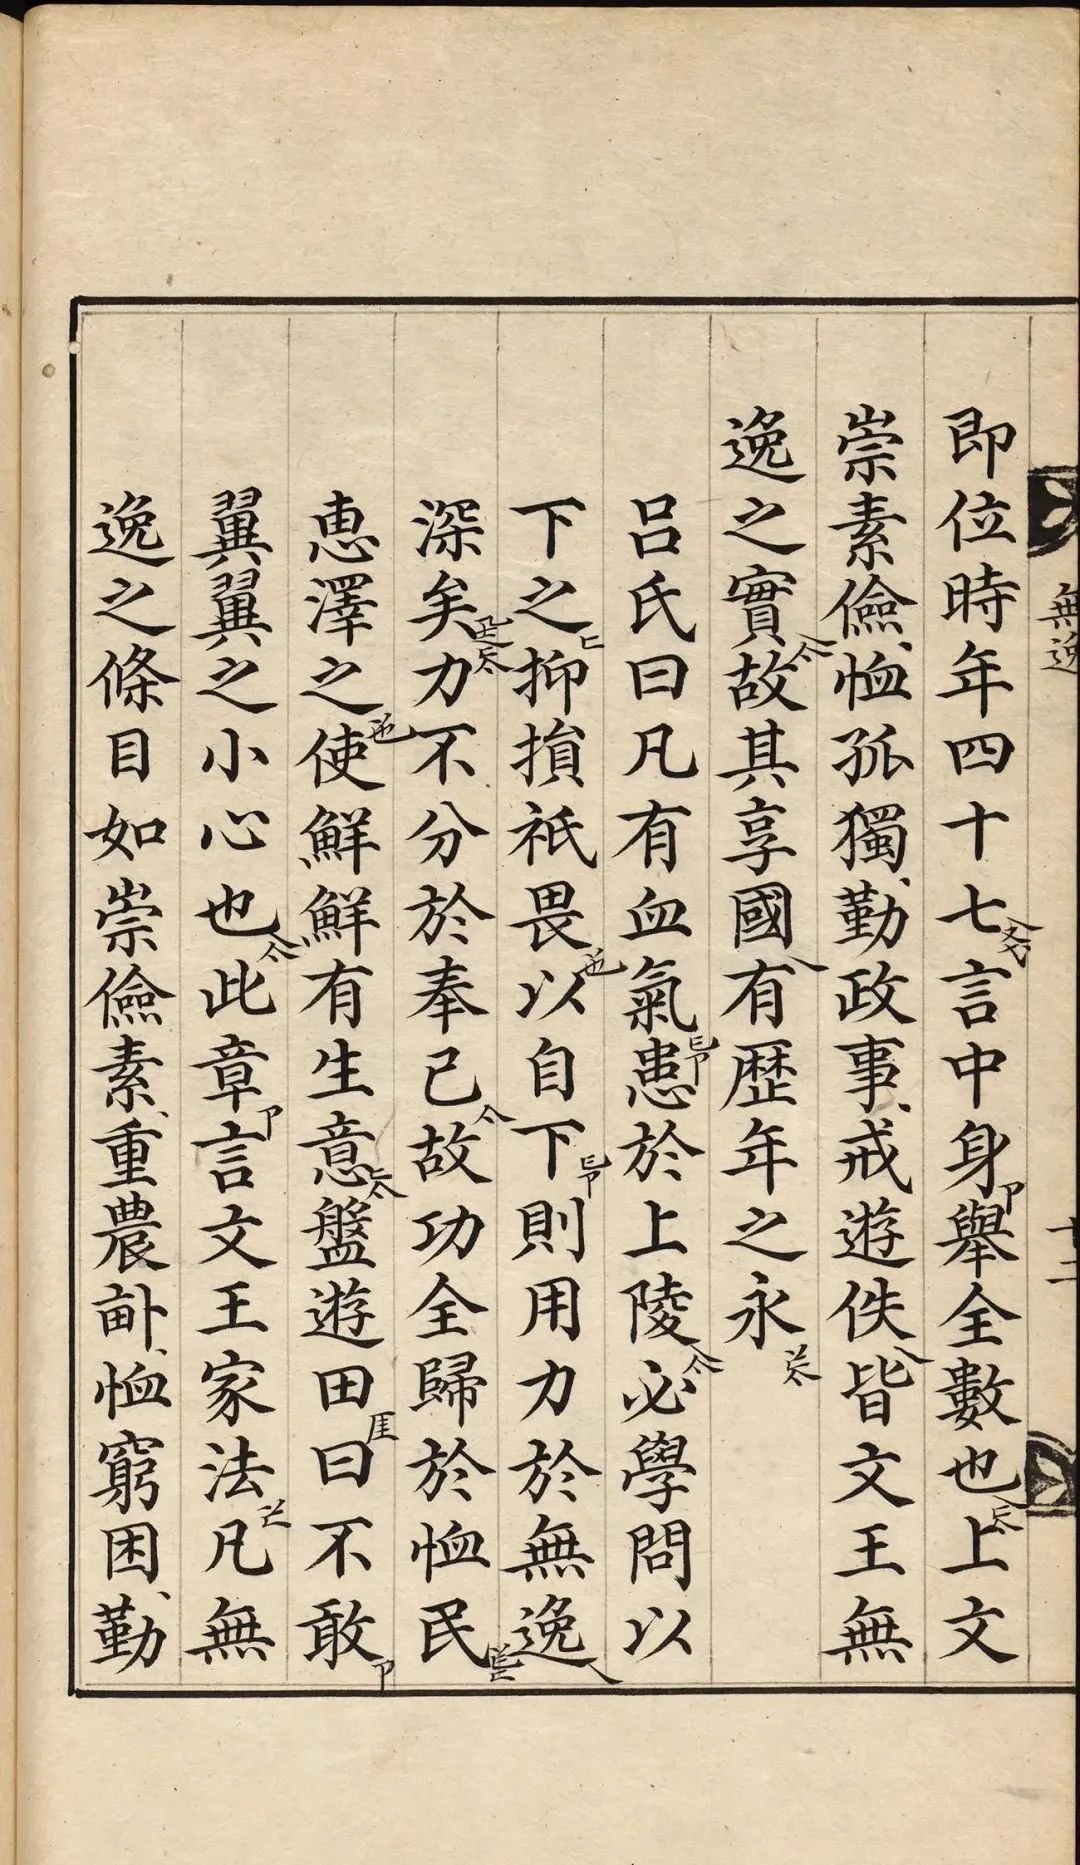 無逸 十二
即位時年四十七言中身舉全數也上文
崇素儉恤孤獨勤政事戒遊佚皆文王無
逸之實故其享國有歷年之永
呂氏曰凡有血氣患於上陵必學問以
下之抑損祇畏以自下則用力於無逸
深矣力不分於奉己故功全歸於恤民
惠澤之使鮮鮮有生意盤遊田曰不敢
翼翼之小心也此章言文王家法凡無
逸之條目如崇儉素重農畝恤窮困勤